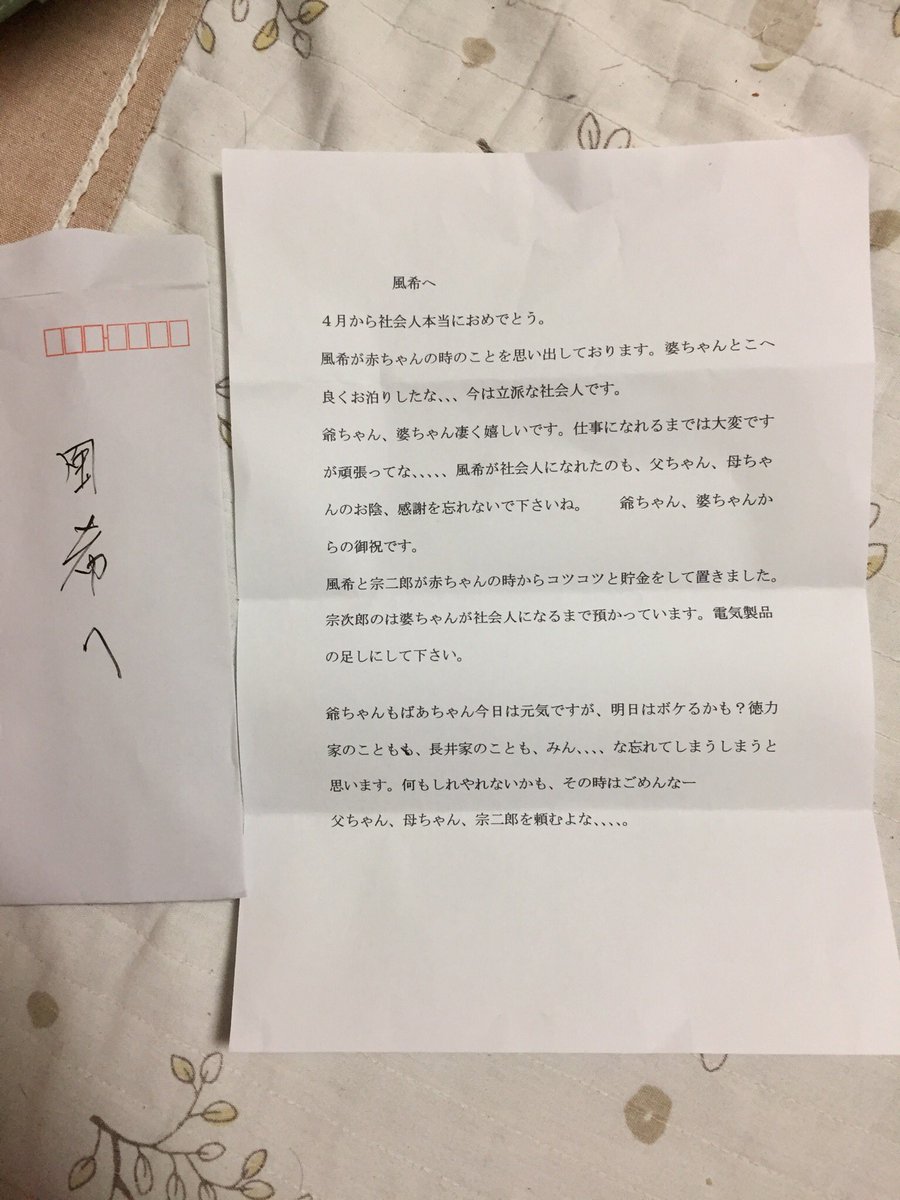 風希へ
風希へ
４月から社会人本当におめでとう。
風希が赤ちゃんの時のことを思い出しております。婆ちゃんとこへ
良くお泊りしたな、、、今は立派な社会人です。
爺ちゃん、婆ちゃん凄く嬉しいです。仕事になれるまでは大変です
が頑張ってな、、、、、風希が社会人になれたのも、父ちゃん、母ちゃ
んのお陰、感謝を忘れないで下さいね。　　爺ちゃん、婆ちゃんか
らの御祝です。
風希と宗二郎が赤ちゃんの時からコツコツと貯金をして置きました。
宗次郎のは婆ちゃんが社会人になるまで預かっています。電気製品
の足しにして下さい。
爺ちゃんもばあちゃん今日は元気ですが、明日はボケるかも？徳力
家のことも、長井家のことも、みん、、、、な忘れてしまうしまうと
思います。何もしれやれないかも、その時はごめんなー
父ちゃん、母ちゃん、宗二郎を頼むよな、、、、。